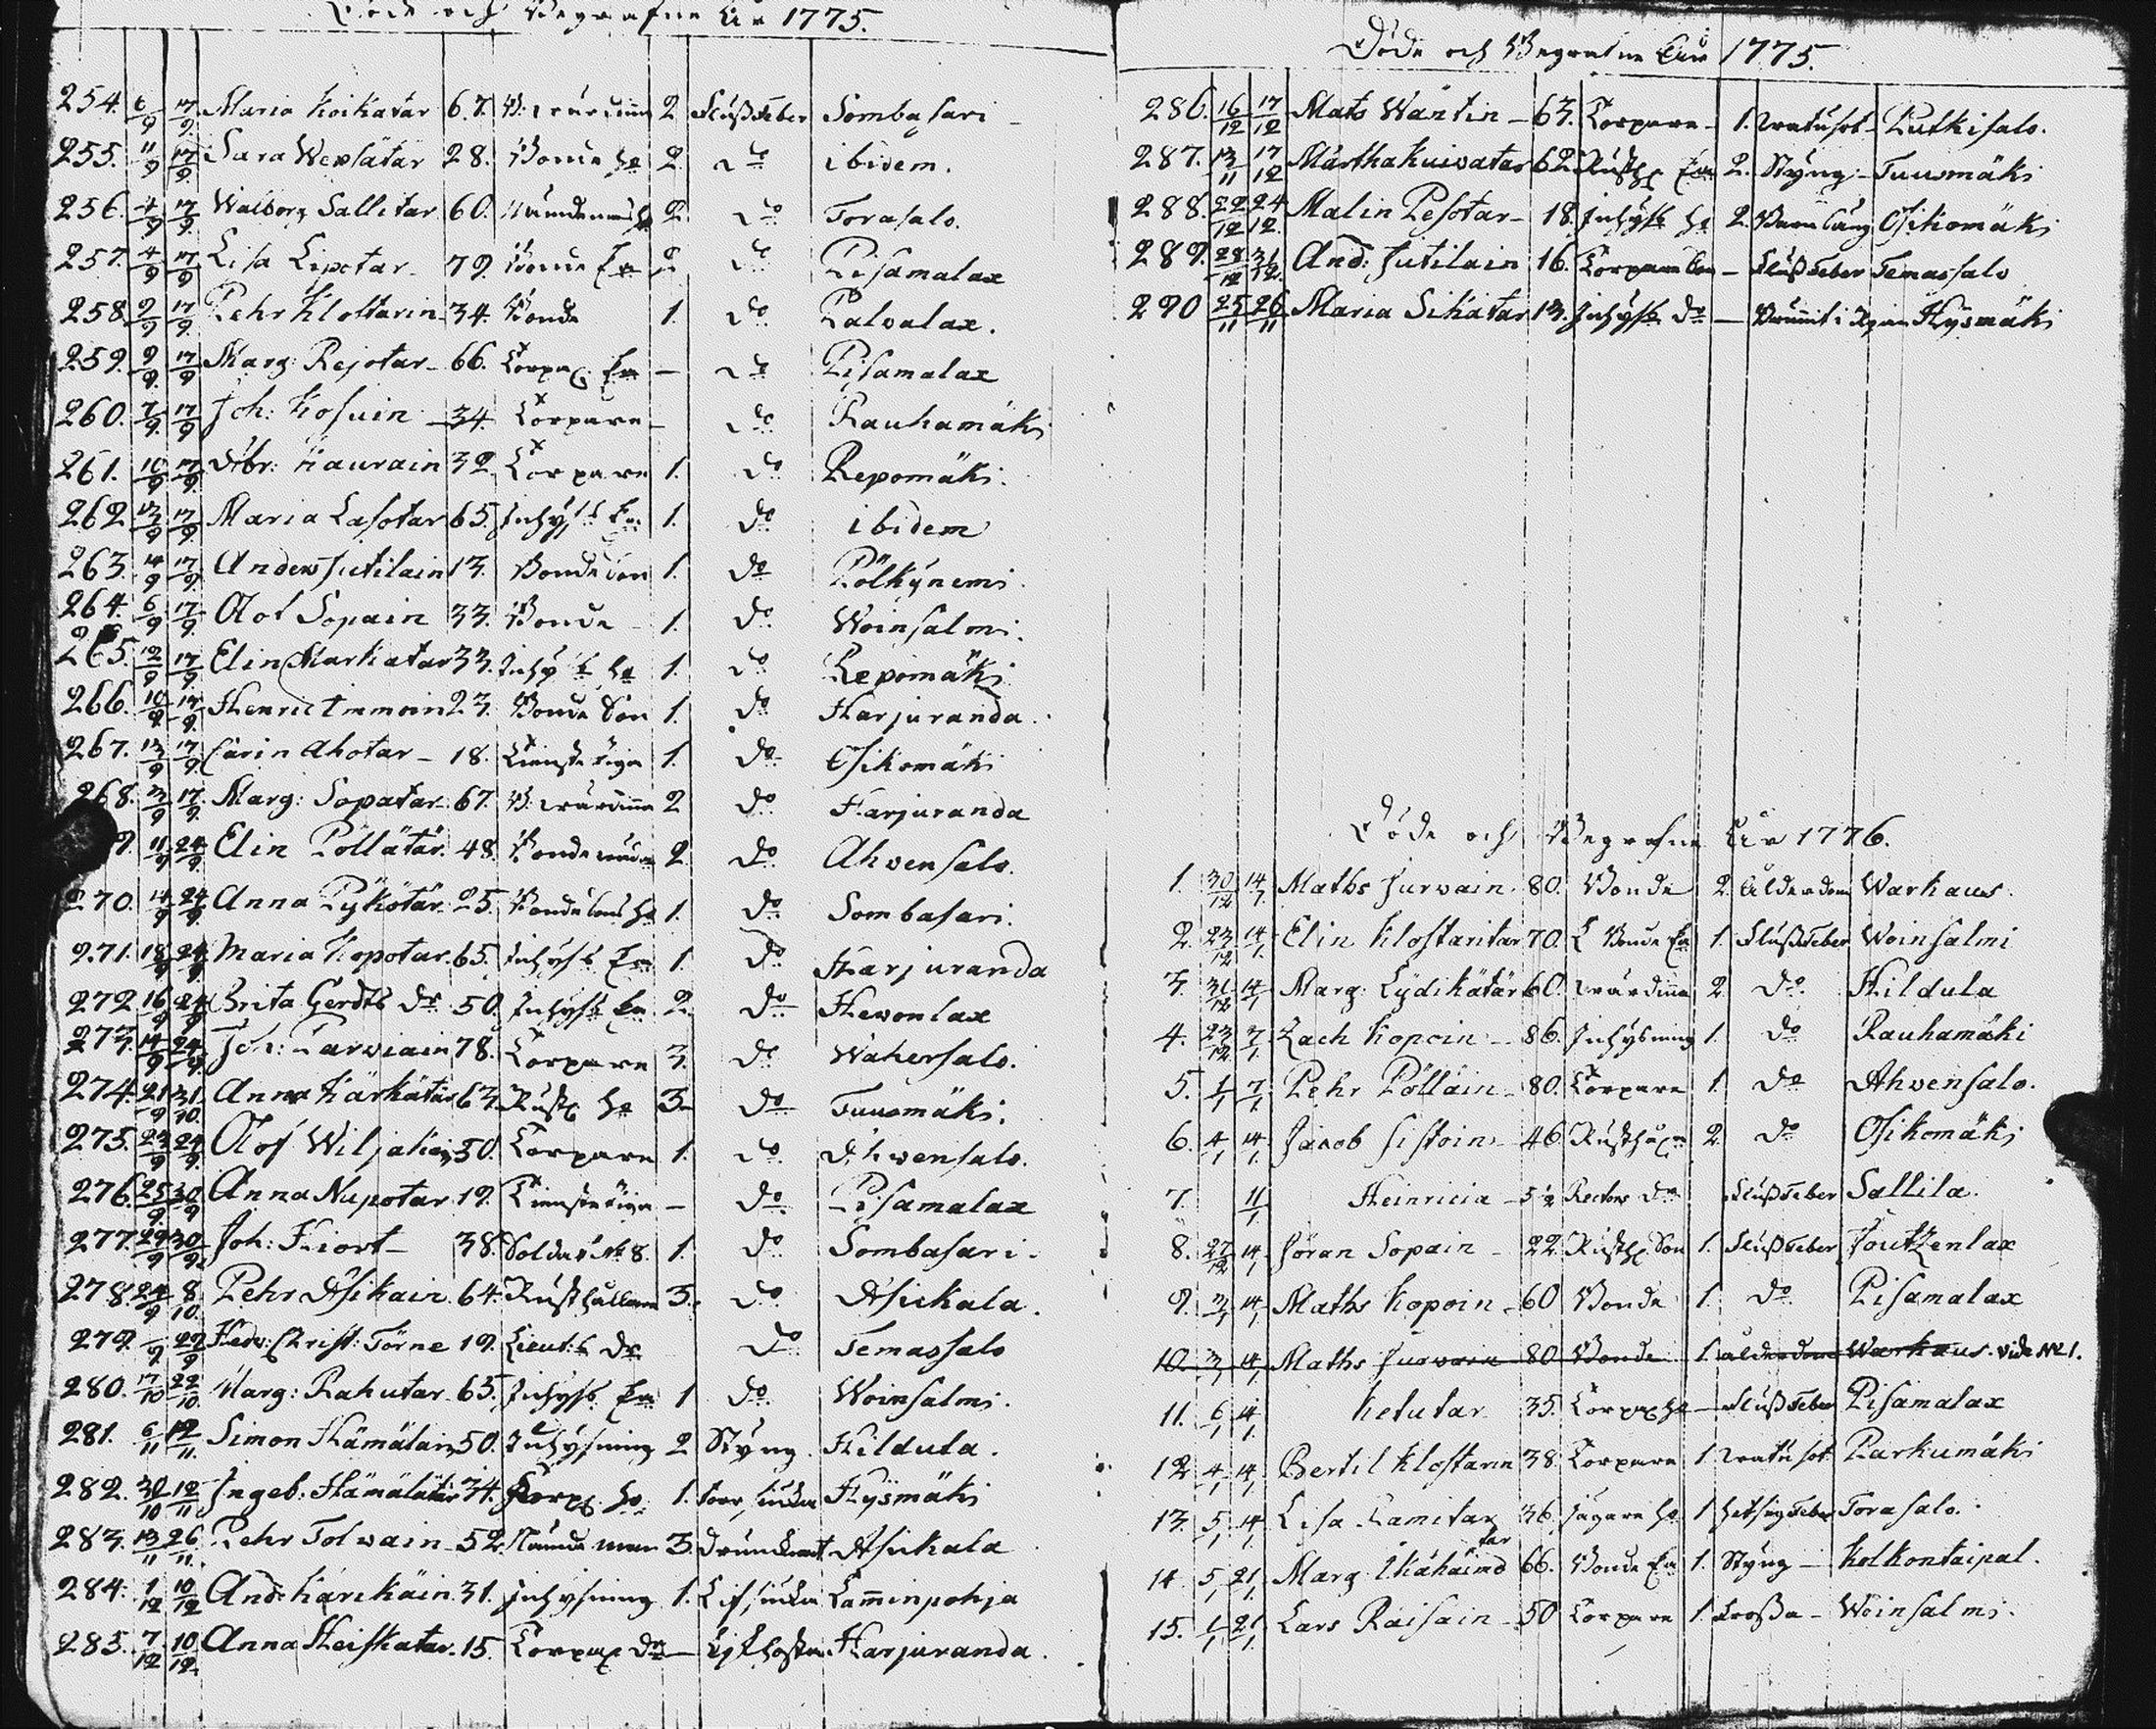 Döde och Begrafne År 1775.
254. 6/9 17/9 Maria Koikatar 67. B: wärdinna 2 Flußfeber Sombasari
255. 11/9 17/9 Sara Wepsätar 28. Bonde hu 2. do ibidem.
256. 4/9 17/9 Walborg Sallitar 60. Nämdemans hu 2. do Torasalo.
257. 4/9 17/9 Lisa Lipotar 79. Bonde Enka 2. do Pisamalax
258. 9/9 17/9 Pehr Klostarin 34. Bonde 1. do Palvalax.
259. 9/9 17/9 Marg: Rejotar 66. Torpar Enka — do Pisamalax
260. 7/9 17/9 Joh: Kosuin 34. Torpare — do Rauhamäki
261. 10/9 17/9 Abr: Haurain 32. Torpare 1. do Repomäki.
262 13/9 17/9 Maria Lasotar 65. Inhyses Enka 1. do ibidem
263. 14/9 17/9 Anders Jutilain 13. Bonde son 1. do Pölkynemi
264. 6/9 17/9 Olof Sopain 33. Bonde 1. do Woinsalmi.
265. 12/9 17/9 Elin Markatar 33. Inhyses hu 1. do Repomäki
266. 10/9 17/9 Henric Immoin 23. Bonde Son 1. do Harjuranda.
267. 13/9 17/9 Carin Ahotar 18. Tienste Piga 1. do Osikomäki
268. 3/9 17/9 Marg: Sopatar 67. B: wärdinna 2 do Harjuranda
9. 11/9 24/9 Elin Pöllätär 48. Bonde 2. do Ahvensalo.
270. 14/9 24/9 Anna Pykötär 25. Bondesons hu 1. do Sombasari.
271. 18/9 24/9 Maria Kopotar 65. Inhyses Enka 1. do Harjuranda
272 16/9 24/9 Brita Gerdts dr 50. Inhyses Enka 2. do Hevonlax
273. 14/9 24/9 Joh: Parviain 78. Torpare 3. do Wahersalo.
274. 21/9 31/10. Anna Kärkätär 63. Rusth hu 3. do Tuusmäki.
275. 23/9 24/9 Olof Wiljakain 50. Torpare 1. do Ahvensalo.
276. 25/9 30/9 Anna Nupotar 19. Tienste Piga — do Pisamalax
277. 29/9 30/9 Joh: Hiort 38. Soldat No 8. 1. do Sombasari.
278. 24/9 8/10. Pehr Asikain 64. Rusthållare 3. do Asickala.
279. /9 22/9 Hedv: Christ: Törne 19. Lieut:s dr do Temassalo
280. 17/10 22/10. Marg: Rahutar 65. Inhyses Enka 1 do Woinsalmi.
281. 6/11 12/11. Simon Hämäläin 50. Inhysning 2 Styng. Hildula.
282. 30/10 12/11 Ingeb: Hämälätär 34. Torp. hu 1. Hysmäki
283. 13/11 26/11. Pehr Tolvain 52. Nämdeman 3. Drunknat Asickala
284. 1/12 10/12 And: Karikäin 31. Inhysning 1. Lifsiuka Lam̄inpohja
285. 7/12 10/12. Anna Heiskatar 15. Torpar dr — Harjuranda.
Döde och Begrafne Åhr 1775.
286. 16/12 17/12 Mats Wäntin 63. Torpare 1. Watusot Putkisalo.
287. 13/11 17/12 Märtha Kuivatar 62. Rusth Enka 2. Styng Tuusmäki
288. 22/12 24/12. Malin Pesotar 18. Inhyses hu 2. Barnsäng Osikomäki
289. 28/12 31/12. And: Jutilain 16. Torpare son — Flußfeber Temassalo
290 25/11 26/11 Maria Sikatar 13. Inhyses dr — Brunnit i Rian Hysmäki
Döde och Begrafne År 1776.
1. 30/12 14/1. Maths Jurvain 80. Bonde 2. Ålderdom Warkaus.
2. 23/12 14/1. Elin Klostaritar 70. Bonde Enka 1. Flußfeber Woinsalmi
3. 31/12 14/1. Marg: Lydikätär 60. Wärdinna 2. do Hildula
4. 23/12 7/1. Zach Kopoin 86. Inhysning 1. do Rauhamäki
5. 1/1 7/1. Pehr Pölläin 80. Torpare 1. do Ahvensalo.
6. 4/1 14/1. Jacob Sistoin 46. Rusthåller 2. do Osikomäki
7. 11/1 Heinricia 5 1/2 Rectors dr Flußfeber Sallila.
8. 27/12 14/1 Jöran Sopain 22. Rusth Son 1. Flußfeber Joutzenlax
9. 3/1 14/1 Maths Kopoin 60 Bonde 1. do Pisamalax
10. 3/1 14/1 Maths Jurvain 80 Bonde 1. ålderdom Warkaus. vide No 1.
11. 6/1 14/1. Ketutar 35. Torpar hu — Flußfeber Pisamalax
12 4/1 14/1. Bertil Klostarin 38 Torpare 1 Watusot Parkumäki
13. 5/1 14/1. Lisa Lamitar 36. Jägare hu 1 hetsigfeber Torasalo.
14. 5/1 21/1. Marg: Ikähäind tar 66. Bonde Enka 1. Styng Kolkontaipal.
15. 1/1 21/1. Lars Raisain 50 Torpare 1. Froßa Woinsalmi.